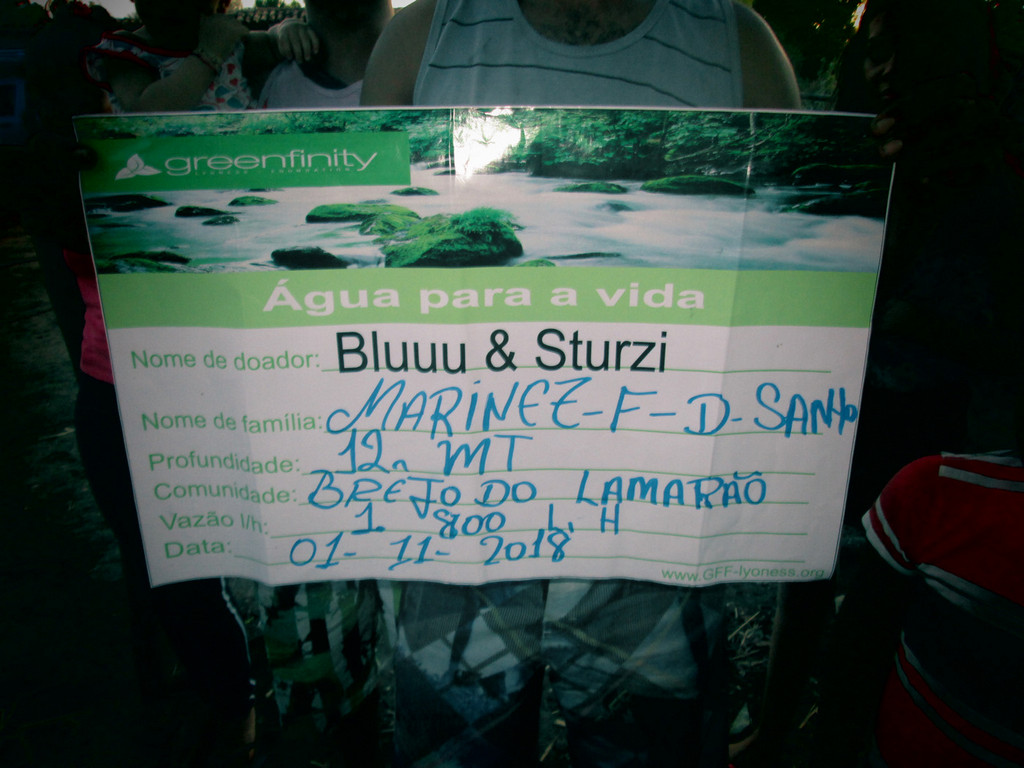 greenfinity
Água para a vida
Nome de doador: Bluuu & Sturzi
Nome de família: MARINEZ-F-D-SANTO
Profundidade: 12. MT
Comunidade: BREJO DO LAMARÃO
Vazão l/h: 1. 800 L. H
Data: 01-11-2018
www.GFF-lyoness.org